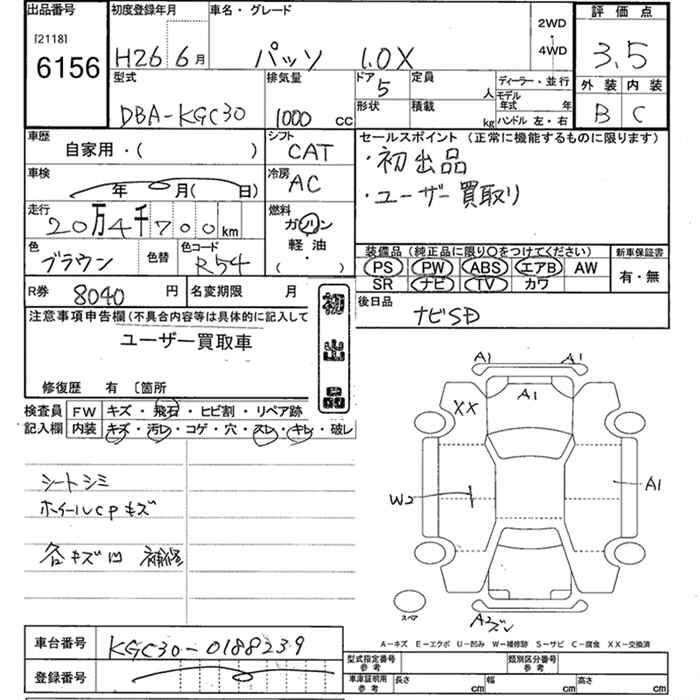 出品番号
[2118]
6156
初度登録年月
H26 6月
車名・グレード
パッソ 1.0X
2WD
・
4WD
評価点
3.5
外装 内装
B C
型式
DBA-KGC30
排気量
1000 cc
ドア
5
形状
定員
人
積載
kg
ディーラー・並行
モデル
年式 年
ハンドル 左・右
車歴
自家用・( )
シフト
CAT
車検
年 月( 日)
冷房
AC
走行
20万4千700km
燃料
ガソリン
軽油
・
( )
色
ブラウン
色替
色コード
R54
セールスポイント (正常に機能するものに限ります)
・初出品
・ユーザー買取り
装備品 (純正品に限り○をつけてください)
PS PW ABS エアB AW
SR ナビ TV カワ
新車保証書
有・無
R券 8040 円
名変期限 月
後日品
ナビSD
注意事項申告欄(不具合内容等は具体的に記入して
ユーザー買取車
初出品
修復歴 有 〔箇所
検査員
記入欄
FW キズ・飛石・ヒビ割・リペア跡
内装 キズ・汚レ・コゲ・穴・スレ・キレ・破レ
シートシミ
ホイールCPキズ
各キズ凹 補修
A1 A1
A1
XX
W2
A1
スペア
A2ズレ
A-キズ E-エクボ U-凹み W-補修跡 S-サビ C-腐食 XX-交換済
車台番号
KGC30-0188239
登録番号
型式指定番号
参考
類別区分番号
参考
車庫証明
参考
長さ cm
幅 cm
高さ cm